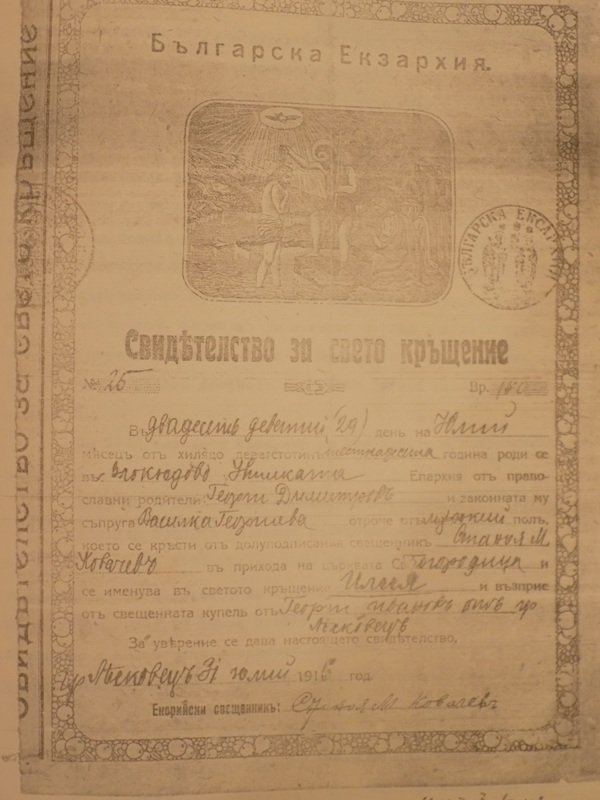 Българска Екзархия.
БЪЛГАРСКА ЕКСАРХИЯ
Свидѣтелство за свето кръщение
№ 25 Вр. 150
Въ двадесеть девети (29) день на Юлий
мѣсецъ отъ хилядо деветстотинъ шестнадесета година роди се
въ Епархия отъ право-
славни родители: Георги Димитровъ и законната му
съпруга Василка Георгиева отроче отъ мѫжкий полъ,
което се кръсти отъ долуподписания свещенникъ Стоян М
Ковачевъ въ прихода на църквата Св. Богородица и
се именува въ светото кръщение Илия и възприе
отъ свещенната купель отъ Георги Ивановъ отъ гр
Лѣсковецъ
За уверение се дава настоящето свидѣтелство.
гр Лѣсковецъ 31 юлий 191 год.
Енорийски свещенникъ: Стоян М Ковачевъ
Свидѣтелство за свето кръщение